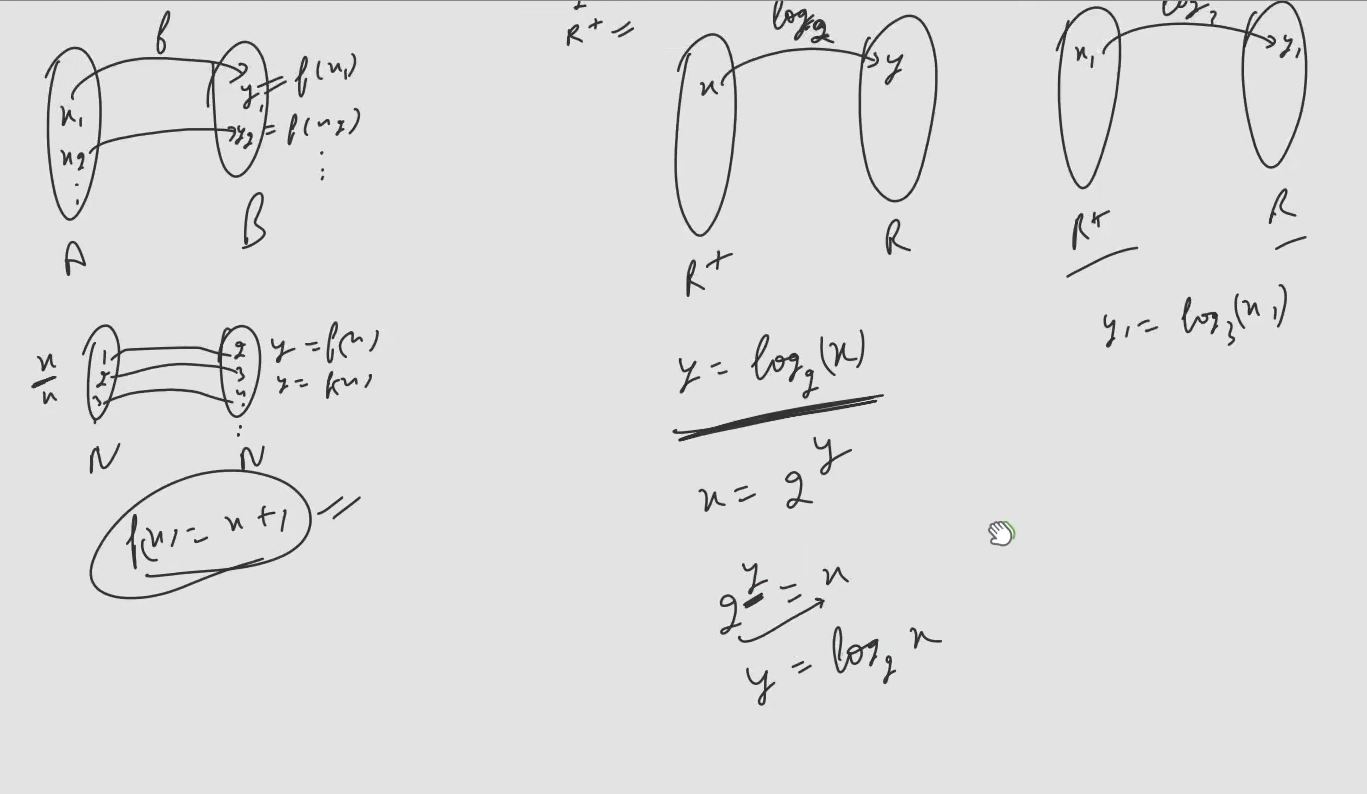 f
x₁
x₂
⋮
A
y₁ = f(x₁)
y₂ = f(x₂)
⋮
B
x
x
1
2
3
N
2
3
4
⋮
N
y = f(x)
y = f(x)
f(x) = x + 1
R⁺ =
log₂
x
y
R⁺
R
y = log₂(x)
x = 2^y
2^y = x
y = log₂ x
log₃
x₁
y₁
R⁺
R
y₁ = log₃(x₁)